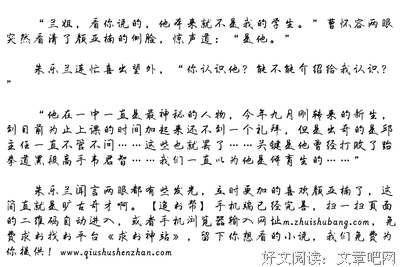 “兰姐，看你说的，他本来就不是我的学生。”曹怀容两眼
突然看清了颜亚楠的侧脸，惊声道：“是他。”
朱乐兰连忙喜出望外，“你认识他？能不能介绍给我认识？
”
“他在一中一直是最神秘的人物，今年九月刚转来的新生，
到目前为止上课的时间加起来还不到一个礼拜，但是出奇的是邱
主任一直不管不问……这些也就罢了……关键是他曾经打败了跆
拳道黑段高手韦君哲……我们一直以为他是体育生的……”
朱乐兰闻言两眼都有些发光，立时更加的喜欢颜亚楠了，这
简直就是旷古奇才啊。【追书帮】手机端已经完善，扫一扫页面
的二维码自动进入，或者手机浏览器输入网址m.zhuishubang.com，免
费求书找书平台《求书神站》，留下你想看的小说，我们免费为
你提供！www.qiushushenzhan.com
好文阅读：文章吧网